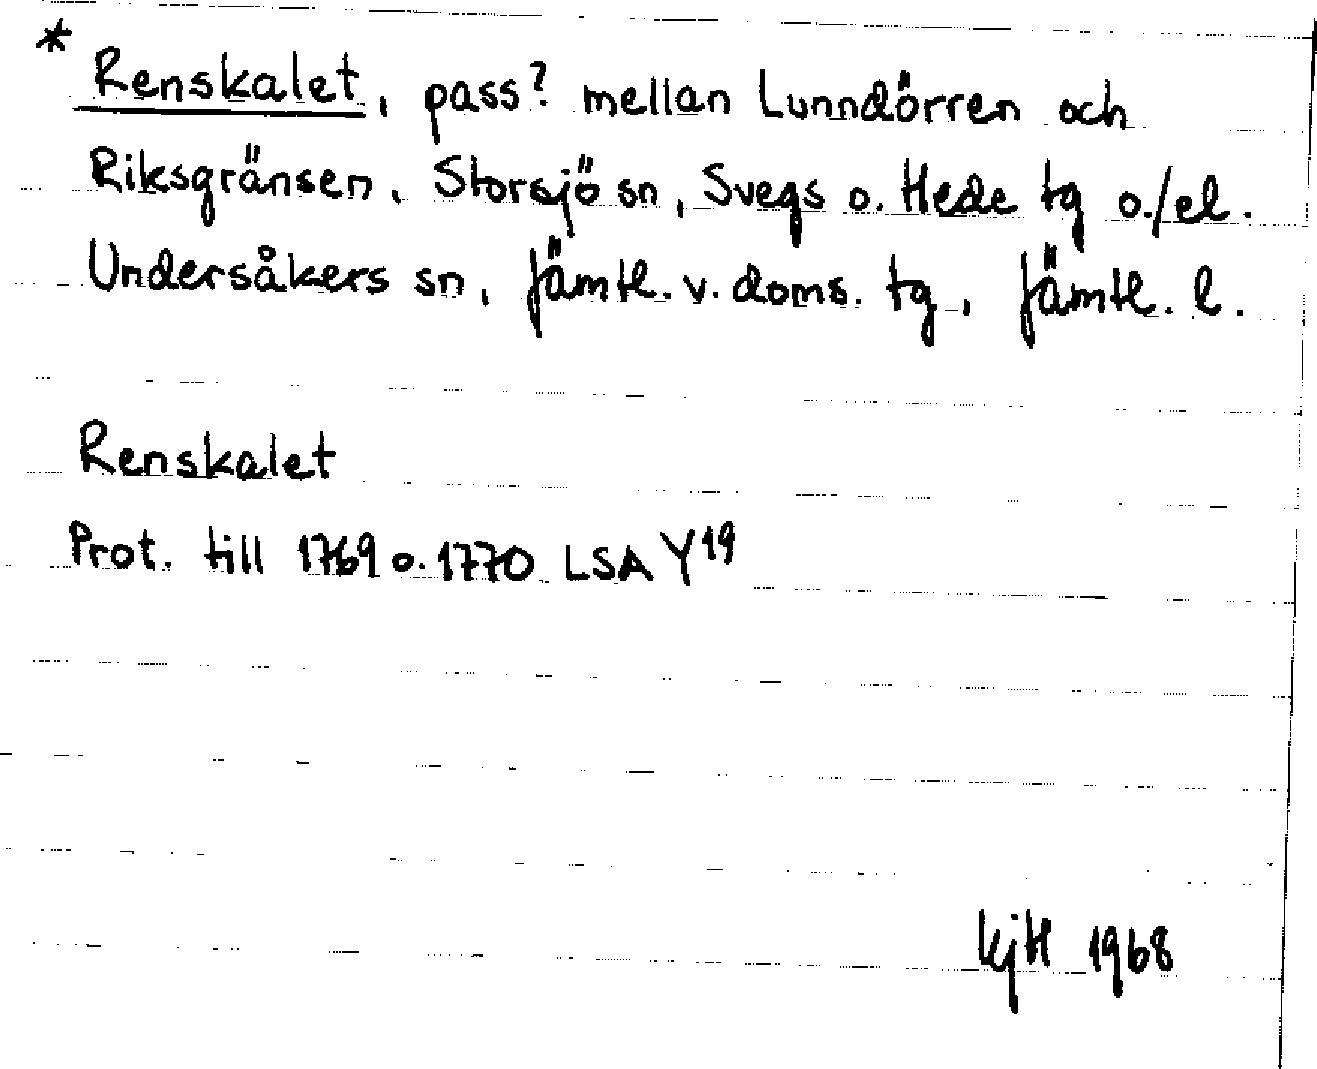 * Renskalet, pass? mellan Lunndörren och
Riksgränsen, Storsjö sn, Svegs o. Hede tg o./el.
Undersåkers sn, Jämtl. v. doms. tg, Jämtl. l.
Renskalet
Prot. till 1769 o. 1770 LSA Y¹⁹
KjH 1968